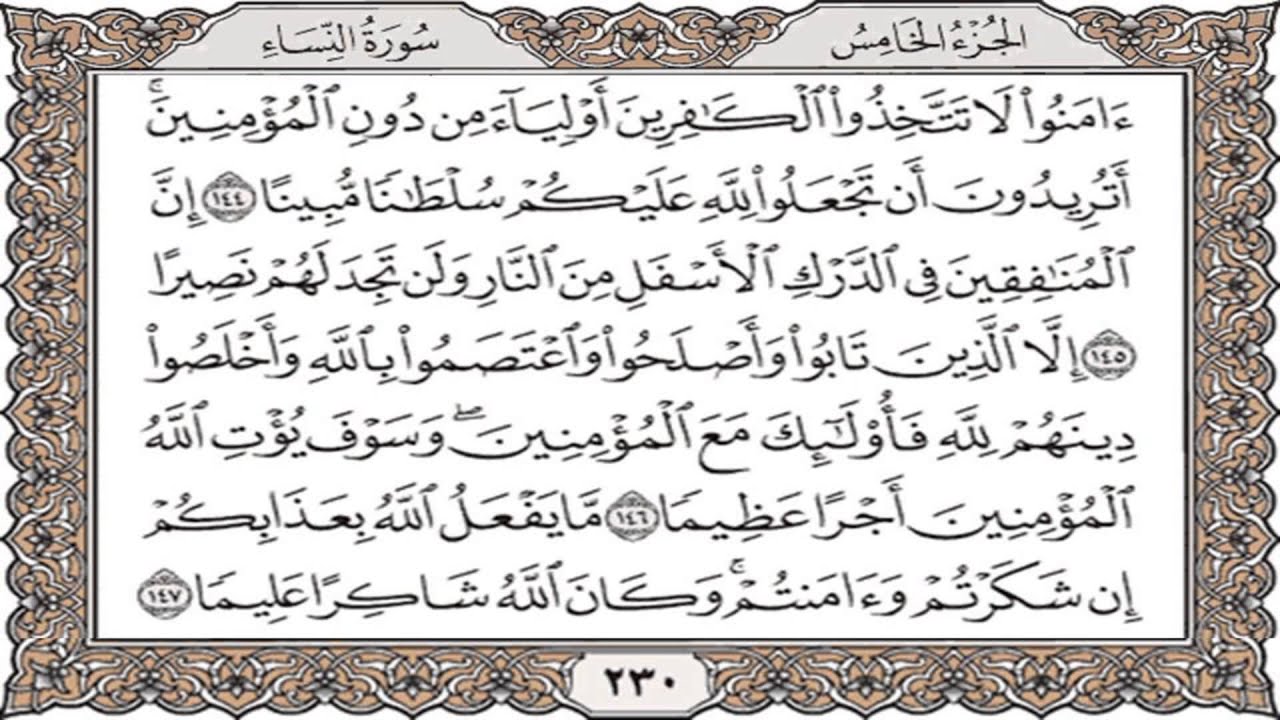 الجُزْءُ الخَامِسُ
سُورَةُ النِّسَاءِ
ءَامَنُوا۟ لَا تَتَّخِذُوا۟ ٱلْكَـٰفِرِينَ أَوْلِيَآءَ مِن دُونِ ٱلْمُؤْمِنِينَ ۚ
أَتُرِيدُونَ أَن تَجْعَلُوا۟ لِلَّهِ عَلَيْكُمْ سُلْطَـٰنًا مُّبِينًا ١٤٤ إِنَّ
ٱلْمُنَـٰفِقِينَ فِى ٱلدَّرْكِ ٱلْأَسْفَلِ مِنَ ٱلنَّارِ وَلَن تَجِدَ لَهُمْ نَصِيرًا
١٤٥ إِلَّا ٱلَّذِينَ تَابُوا۟ وَأَصْلَحُوا۟ وَٱعْتَصَمُوا۟ بِٱللَّهِ وَأَخْلَصُوا۟
دِينَهُمْ لِلَّهِ فَأُو۟لَـٰٓئِكَ مَعَ ٱلْمُؤْمِنِينَ ۖ وَسَوْفَ يُؤْتِ ٱللَّهُ
ٱلْمُؤْمِنِينَ أَجْرًا عَظِيمًا ١٤٦ مَّا يَفْعَلُ ٱللَّهُ بِعَذَابِكُمْ
إِن شَكَرْتُمْ وَءَامَنتُمْ ۚ وَكَانَ ٱللَّهُ شَاكِرًا عَلِيمًا ١٤٧
٢٣٠